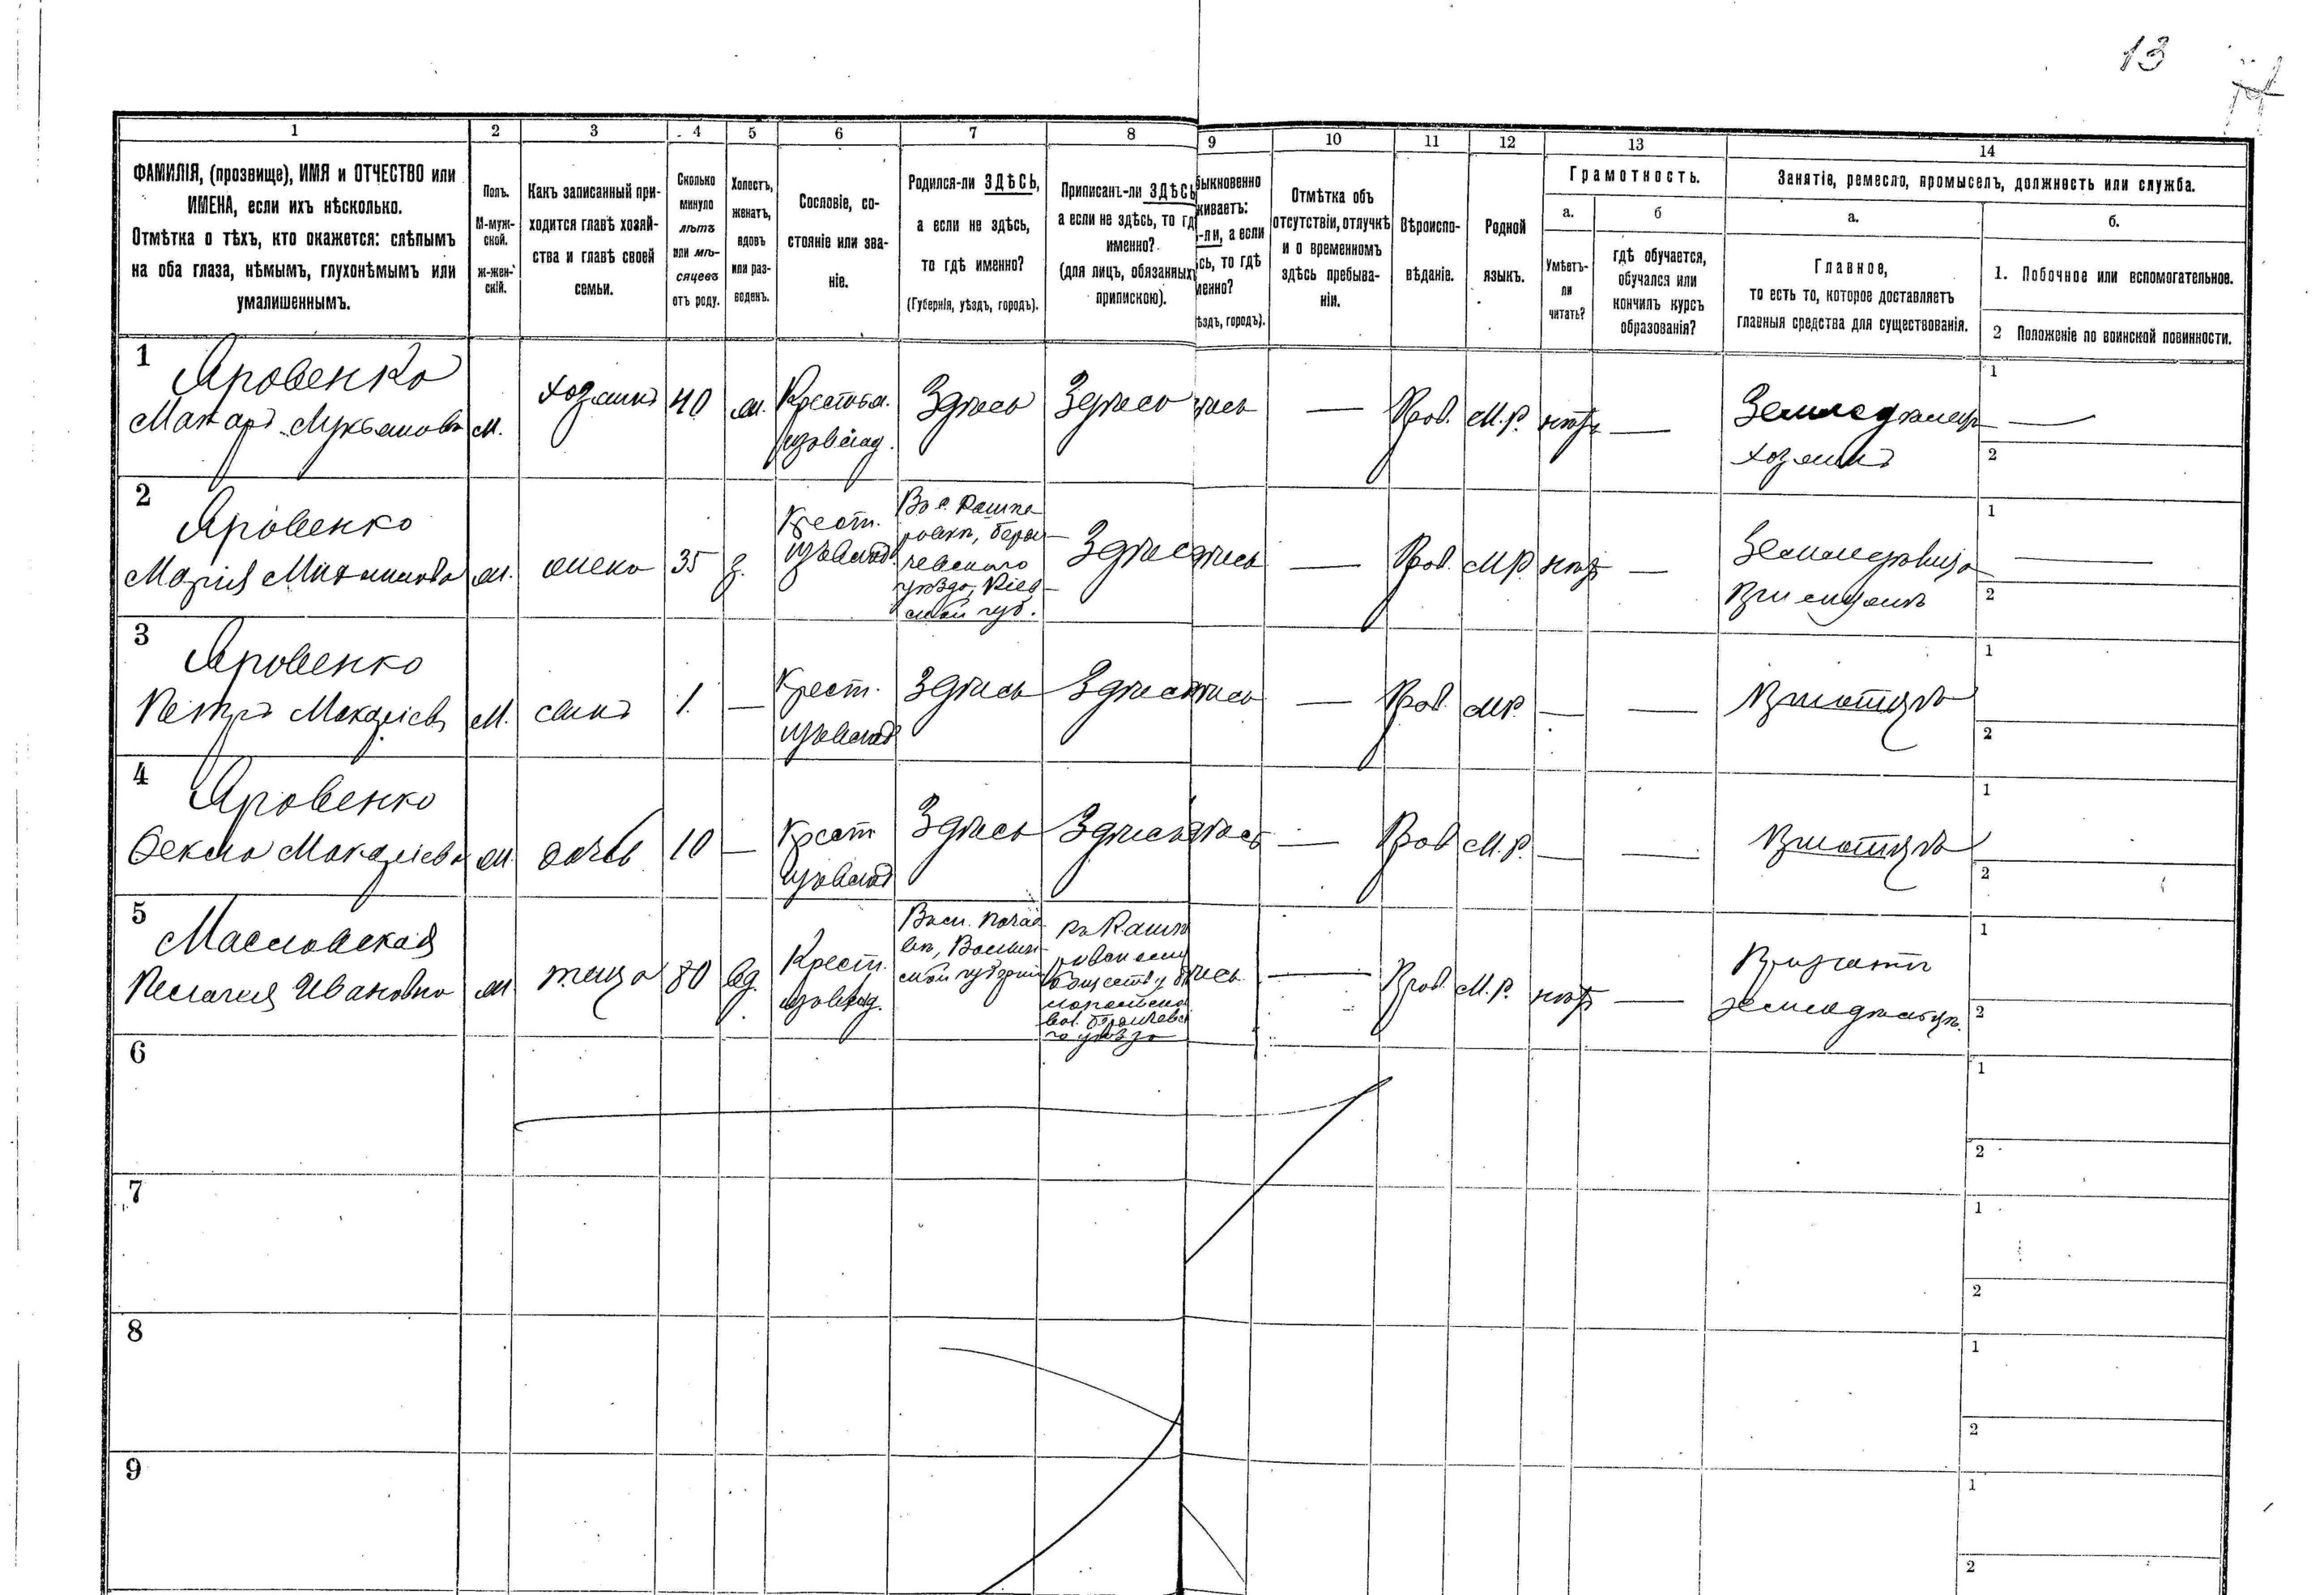 13
1
2
3
4
5
6
7
8
9
10
11
12
13
14
ФАМИЛІЯ, (прозвище), ИМЯ и ОТЧЕСТВО или
ИМЕНА, если ихъ нѣсколько.
Отмѣтка о тѣхъ, кто окажется: слѣпымъ
на оба глаза, нѣмымъ, глухонѣмымъ или
умалишеннымъ.
Полъ.
М-муж-
ской.
ж-жен-
скій.
Какъ записанный при-
ходится главѣ хозяй-
ства и главѣ своей
семьи.
Сколько
минуло
лѣтъ
или мѣ-
сяцевъ
отъ роду.
Холостъ,
женатъ,
вдовъ
или раз-
веденъ.
Сословіе, со-
стояніе или зва-
ніе.
Родился-ли ЗДѢСЬ,
а если не здѣсь,
то гдѣ именно?
(Губернія, уѣздъ, городъ).
Приписанъ-ли ЗДѢСЬ
а если не здѣсь, то гд
именно?
(для лицъ, обязанных
припискою).
быкновенно
живаетъ:
-ли, а если
сь, то гдѣ
менно?
ѣздъ, городъ).
Отмѣтка объ
отсутствіи, отлучкѣ
и о временномъ
здѣсь пребыва-
ніи.
Вѣроиспо-
вѣданіе.
Родной
языкъ.
Грамотность.
а.
Умѣетъ-
ли
читать?
б
гдѣ обучается,
обучался или
кончилъ курсъ
образованія?
Занятіе, ремесло, промыселъ, должность или служба.
а.
Главное,
то есть то, которое доставляетъ
главныя средства для существованія.
б.
1. Побочное или вспомогательное.
2 Положеніе по воинской повинности.
1
Яровенко
Макаръ Лукьяновъ
М.
хозяинъ
40
ж.
Крестья.
Здѣсь
Здѣсь
ѣсь
—
Прав.
М.р.
нѣтъ
—
хозяинъ
1
—
2
2
Яровенко
Марія
ж.
жена
35
з.
Крест.
уѣзда, Кіев-
ской губ.
Здѣс
ѣсь
—
Прав.
М.р.
нѣтъ
—
1
—
2
3
Яровенко
Петръ Макаріев
М.
сынъ
1.
—
Крест.
Здѣсь
Здѣс
ѣсь
—
Прав.
М.р.
—
—
1
2
4
Яровенко
Ѳекла Макаріева
ж.
дочь
10
—
Крест
Здѣсь
Здѣсь
ѣсь
—
Прав
М.р.
—
—
1
2
5
Масловская
Пелагія Ивановна
ж
теща
80
вд.
Крест.
ѣсь
—
Прав.
М.р.
нѣтъ
—
1
2
6
1
2
7
1
2
8
1
2
9
1
2